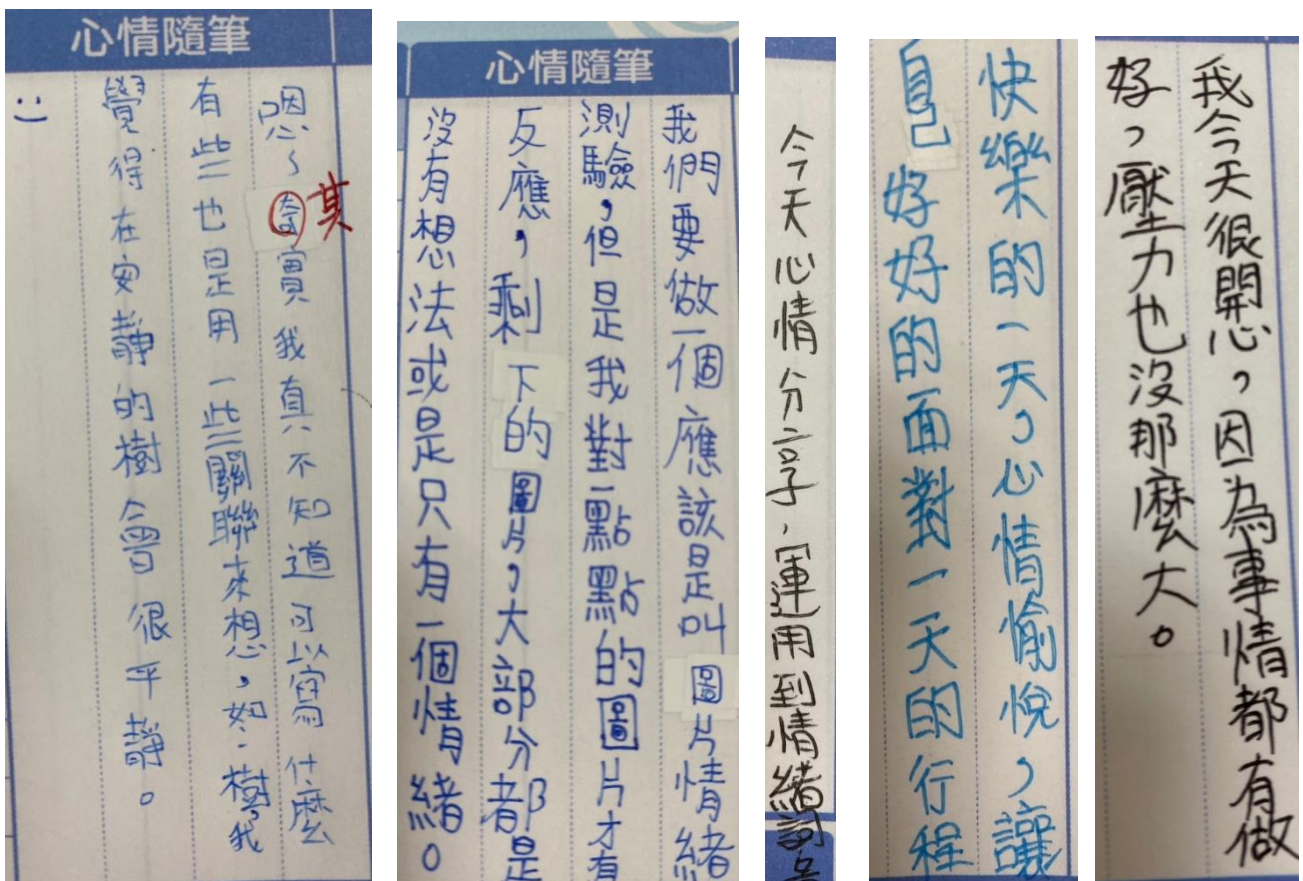 心情隨筆
嗯~奇實我真不知道可以寫什麼
其
有些也是用一些關聯來想,如:樹,我
覺得在安靜的樹會很平靜。
:)
心情隨筆
我們要做一個應該是叫圖片情緒
測驗,但是我對一點點的圖片才有
反應,剩下的圖片,大部分都是
沒有想法或是只有一個情緒。
今天心情分享,運用到情緒詞
快樂的一天,心情愉悅,讓
自己好好的面對一天的行程
我今天很開心,因為事情都有做
好,壓力也沒那麼大。